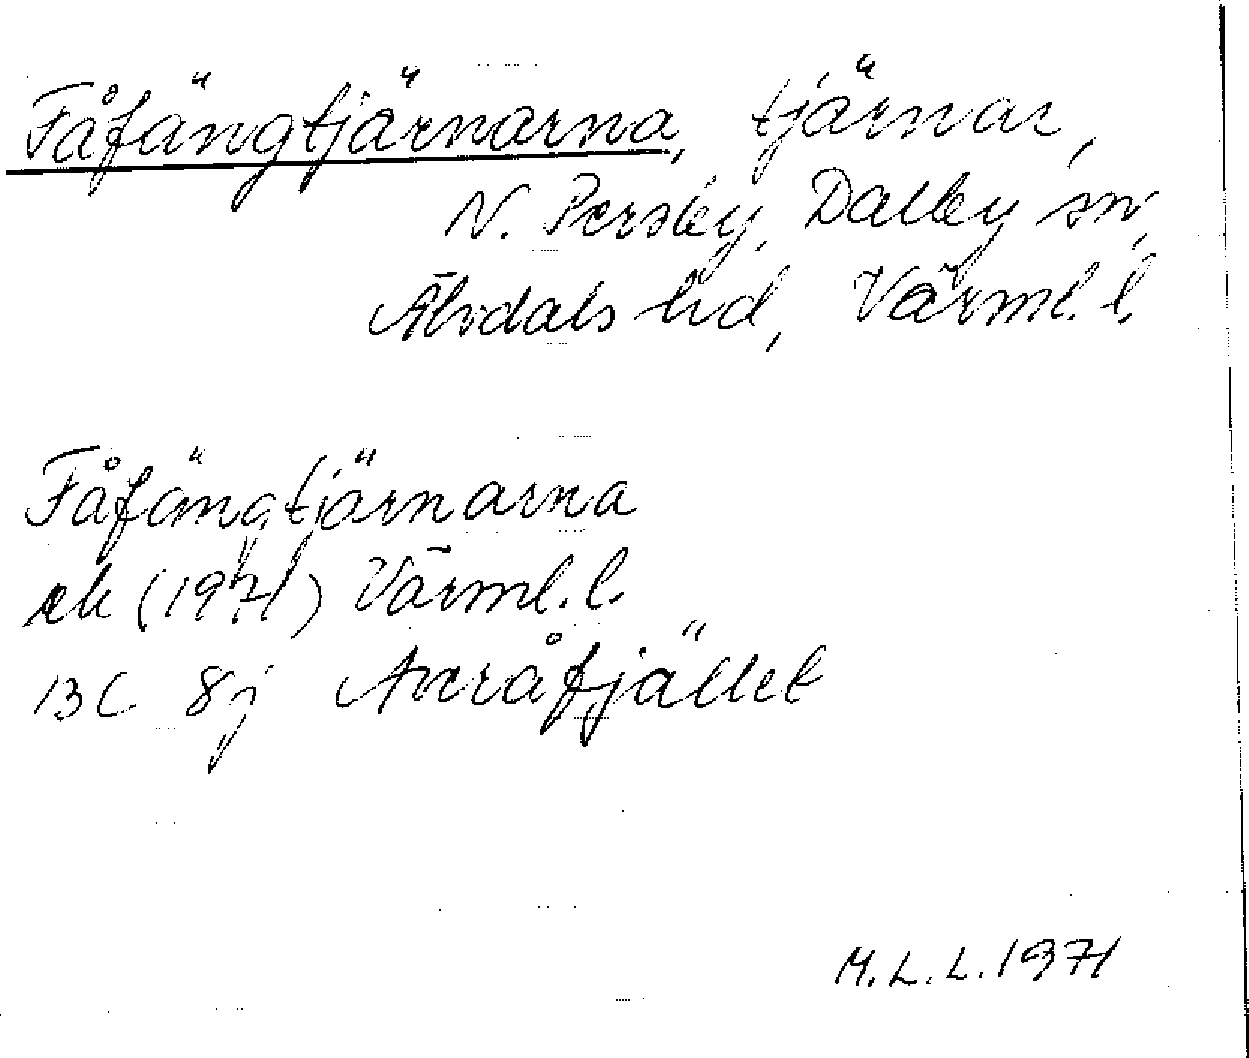 Fåfängtjärnarna, tjärnar,
N. Persby, Dalby sn,
Älvdals hd, Värml. l.
Fåfängtjärnarna
ek (1971) Värml. l.
13C 8j Aneråfjället
M.L.L. 1971